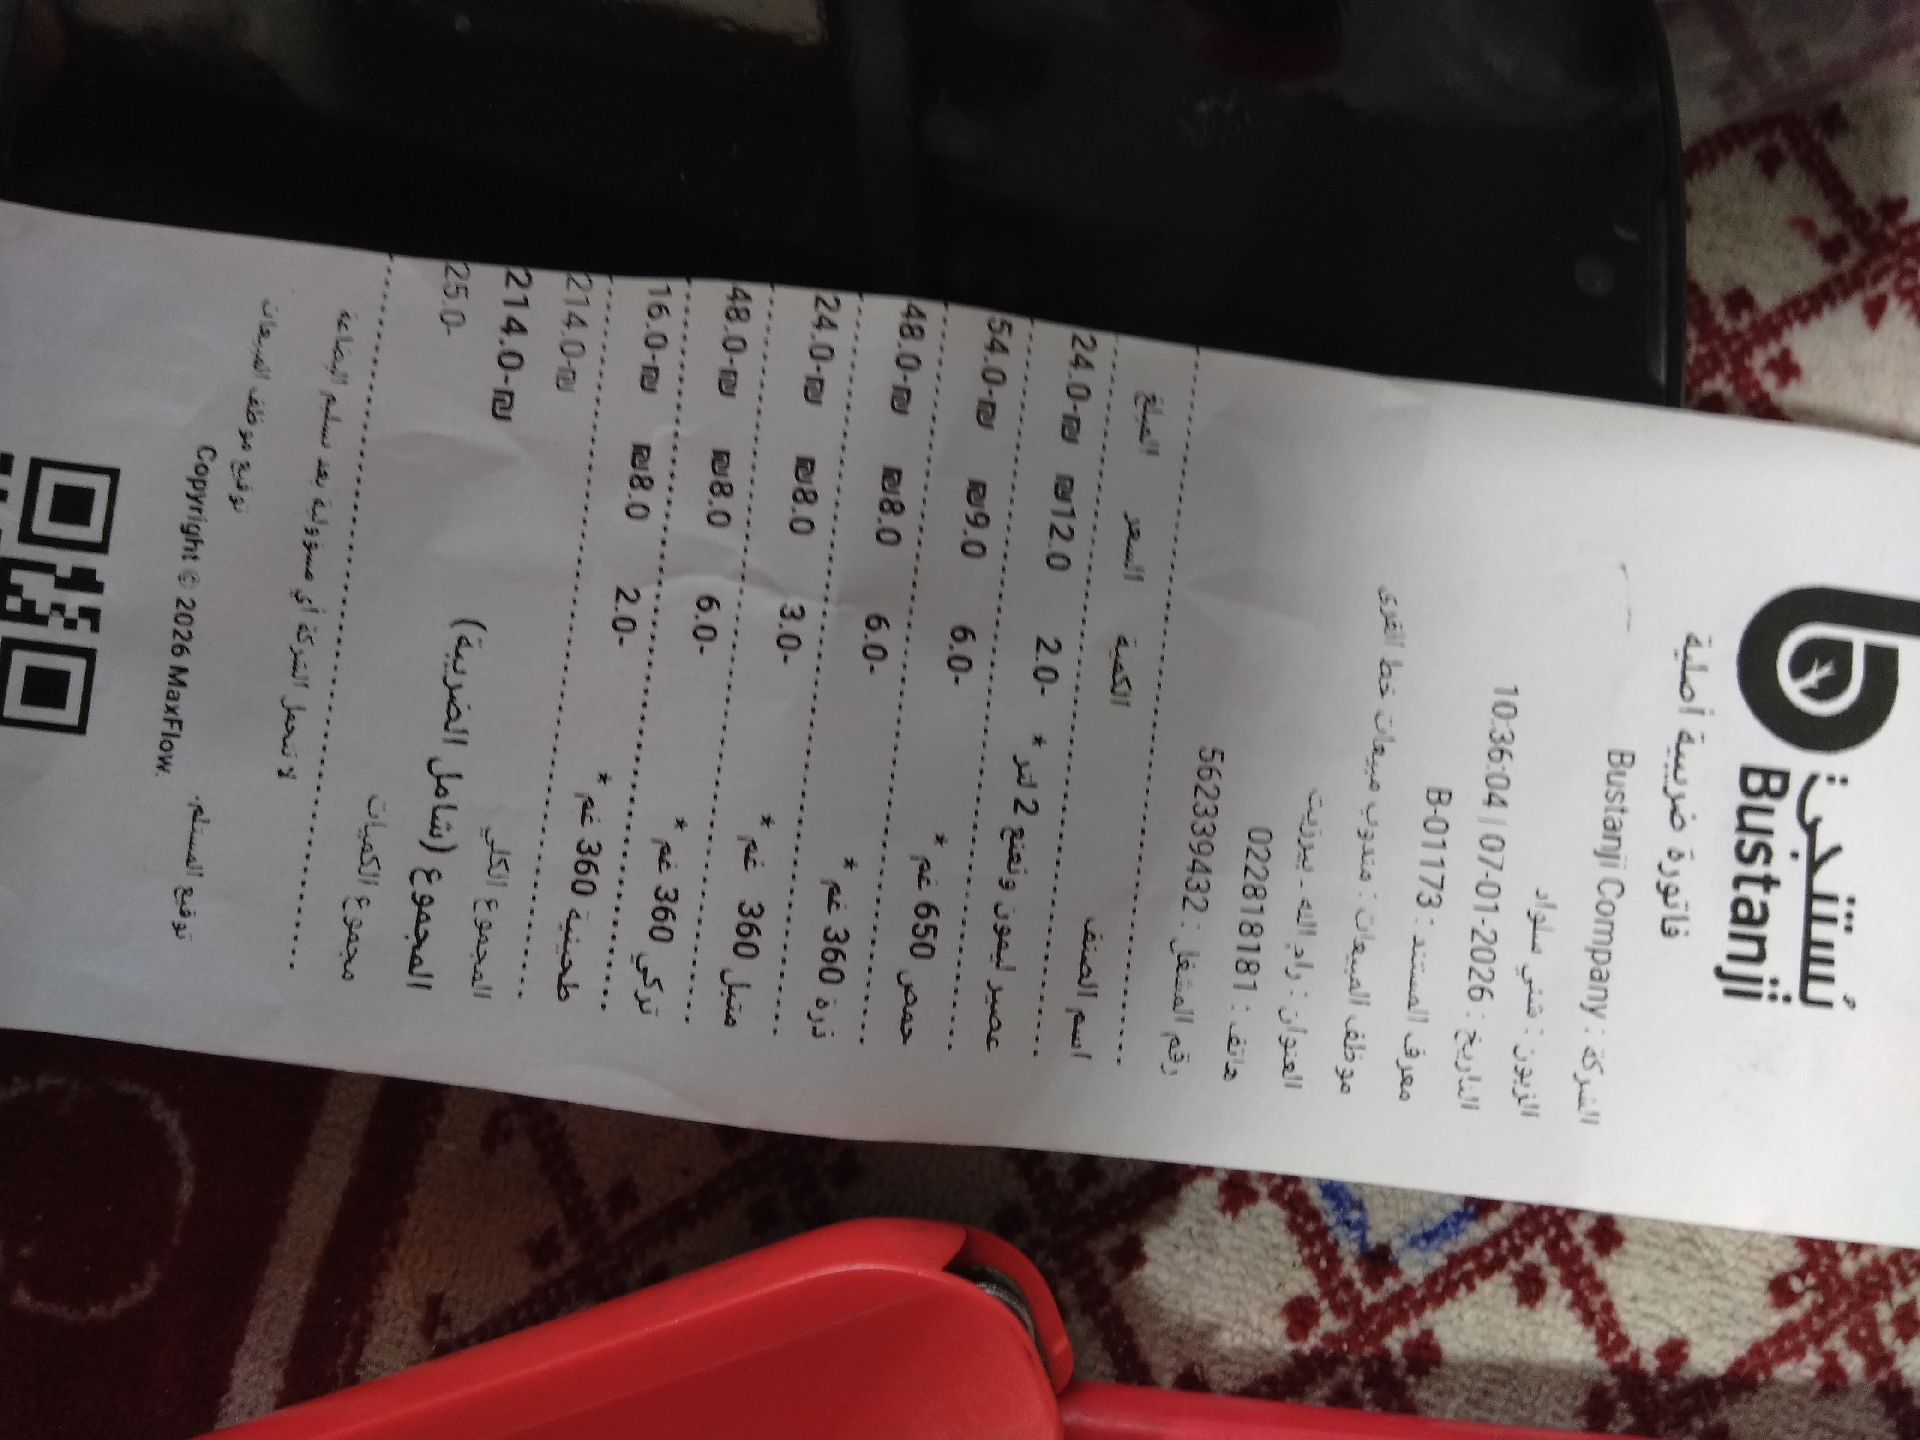 بُستنجي
Bustanji
فاتورة ضريبية أصلية
الشركة : Bustanji Company
الزبون : شني سلواد
التاريخ : 2026-01-07 | 10:36:04
معرف المستند : B-01173
موظف المبيعات : مندوب مبيعات خط القرى
العنوان : رام الله - بيرزيت
هاتف : 022818181
رقم المشغل : 562339432
اسم الصنف الكمية السعر المبلغ
عصير ليمون ونعنع 2 لتر * 2.0- ₪12.0 24.0-₪
حمص 650 غم * 6.0- ₪9.0 54.0-₪
ذرة 360 غم * 6.0- ₪8.0 48.0-₪
متبل 360 غم * 3.0- ₪8.0 24.0-₪
تركي 360 غم * 6.0- ₪8.0 48.0-₪
طحينية 360 غم * 2.0- ₪8.0 16.0-₪
المجموع الكلي 214.0-₪
المجموع (شامل الضريبة) 214.0-₪
مجموع الكميات 25.0-
لا تتحمل الشركة أي مسؤولية بعد تسليم البضاعة
توقيع المستلم. توقيع موظف المبيعات
Copyright © 2026 MaxFlow.